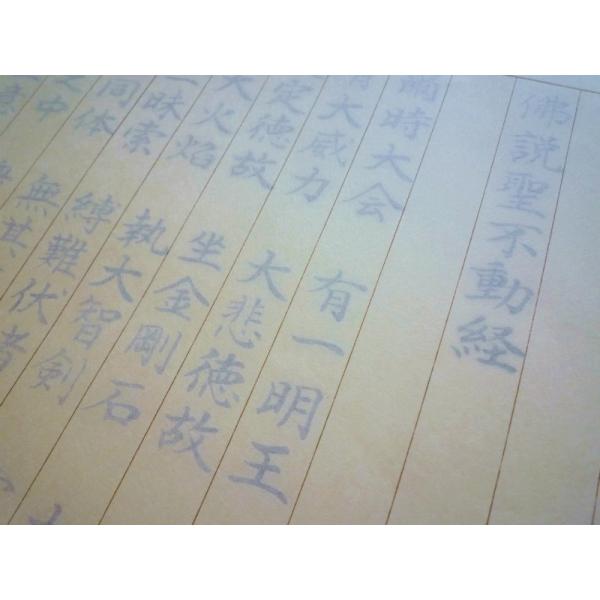 佛説聖不動経
爾時大会 有一明王
大威力 大悲徳故
定徳故 坐金剛石
大火焔 執大智剣
昧索 縛難伏者
同体 無其
之中